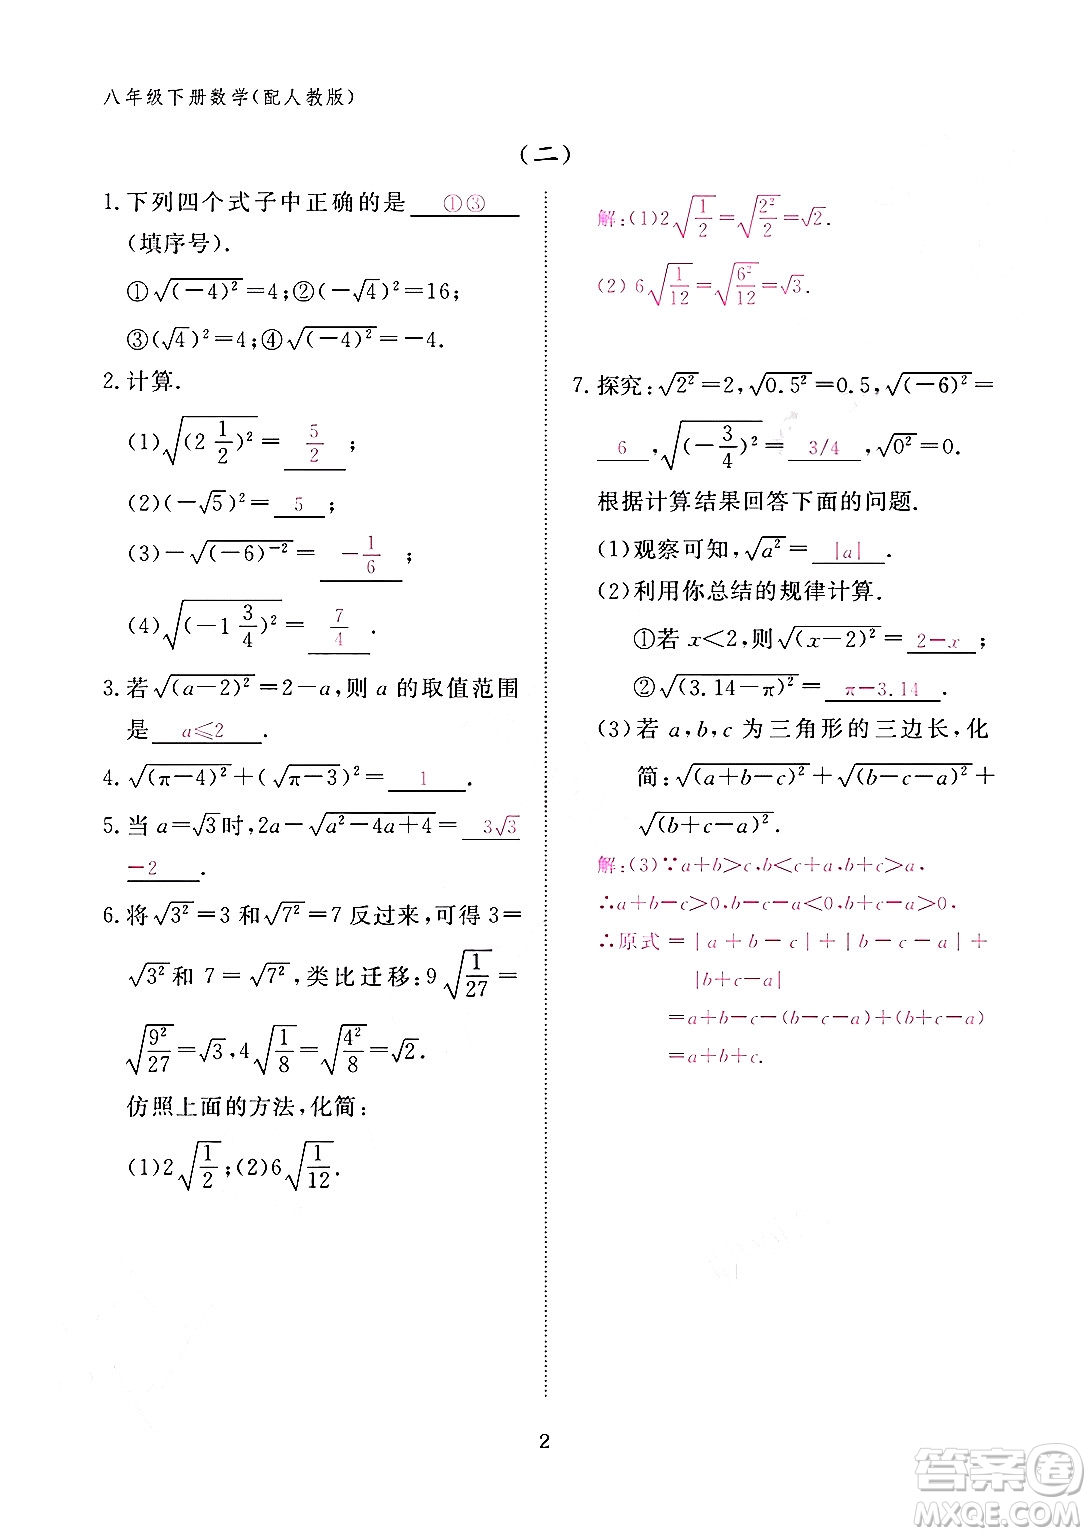 八年级下册数学(配人教版)
(二)
1.下列四个式子中正确的是 ①③
(填序号).
①√(-4)²=4;②(-√4)²=16;
③(√4)²=4;④√(-4)²=-4.
2.计算.
(1)√(2 1/2)²= 5/2 ;
(2)(-√5)²= 5 ;
(3)-√(-6)⁻²= -1/6 ;
(4)√(-1 3/4)²= 7/4 .
3.若√(a-2)²=2-a,则 a 的取值范围
是 a≤2 .
4.√(π-4)²+(√π-3)²= 1 .
5.当 a=√3时,2a-√a²-4a+4= 3√3
-2 .
6.将√3²=3 和√7²=7 反过来,可得 3=
√3²和 7=√7²,类比迁移:9√1/27=
√9²/27=√3,4√1/8=√4²/8=√2.
仿照上面的方法,化简:
(1)2√1/2;(2)6√1/12.
解:(1)2√1/2=√2²/2=√2.
(2)6√1/12=√6²/12=√3.
7.探究:√2²=2,√0.5²=0.5,√(-6)²=
6 ,√(-3/4)²= 3/4 ,√0²=0.
根据计算结果回答下面的问题.
(1)观察可知,√a²= |a| .
(2)利用你总结的规律计算.
①若 x<2,则√(x-2)²= 2-x ;
②√(3.14-π)²= π-3.14 .
(3)若 a,b,c 为三角形的三边长,化
简:√(a+b-c)²+√(b-c-a)²+
√(b+c-a)².
解:(3)∵a+b>c,b<c+a,b+c>a,
∴a+b-c>0,b-c-a<0,b+c-a>0.
∴原式=|a+b-c|+|b-c-a|+
|b+c-a|
=a+b-c-(b-c-a)+(b+c-a)
=a+b+c.
2
答案圈
MXQE.COM